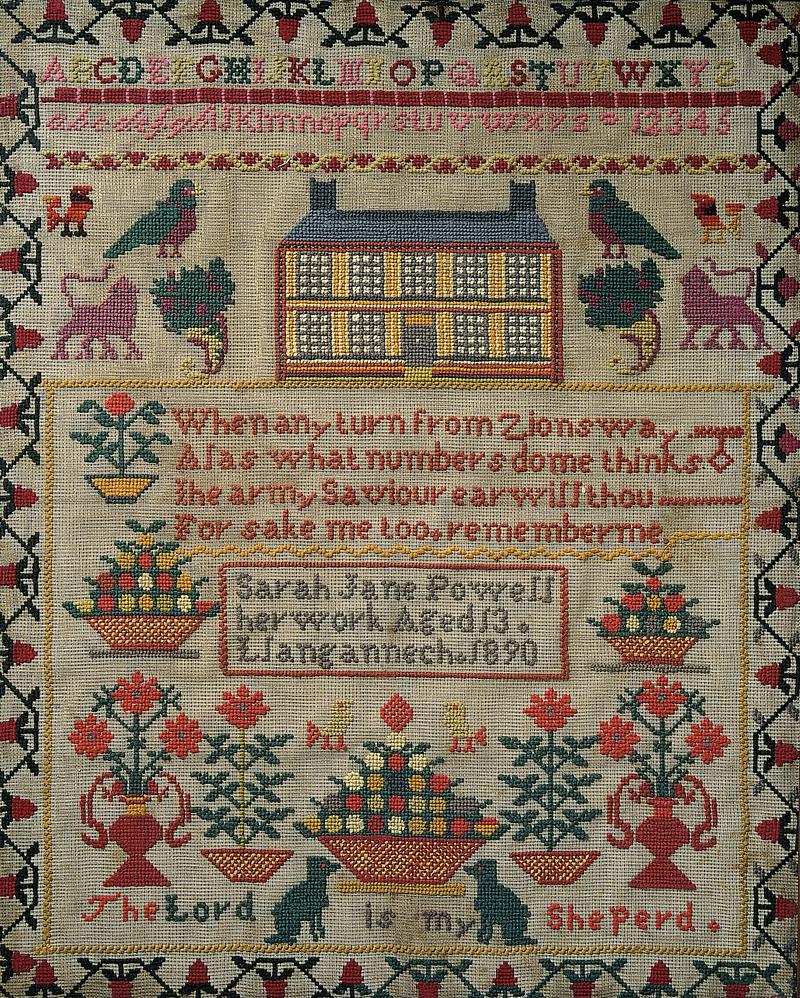 ABCDEFGHIJKLMNOPQRSTUVWXYZ
abcdefghIJKlmnopqrstuvwxyz 12345
When any turn from Zions way
Alas what numbers dome thinks
The army Saviour ear will thou
For sake me too. remember me.
Sarah Jane Powell
her work Aged 13.
Llangannech. 1890
The Lord is my Sheperd.